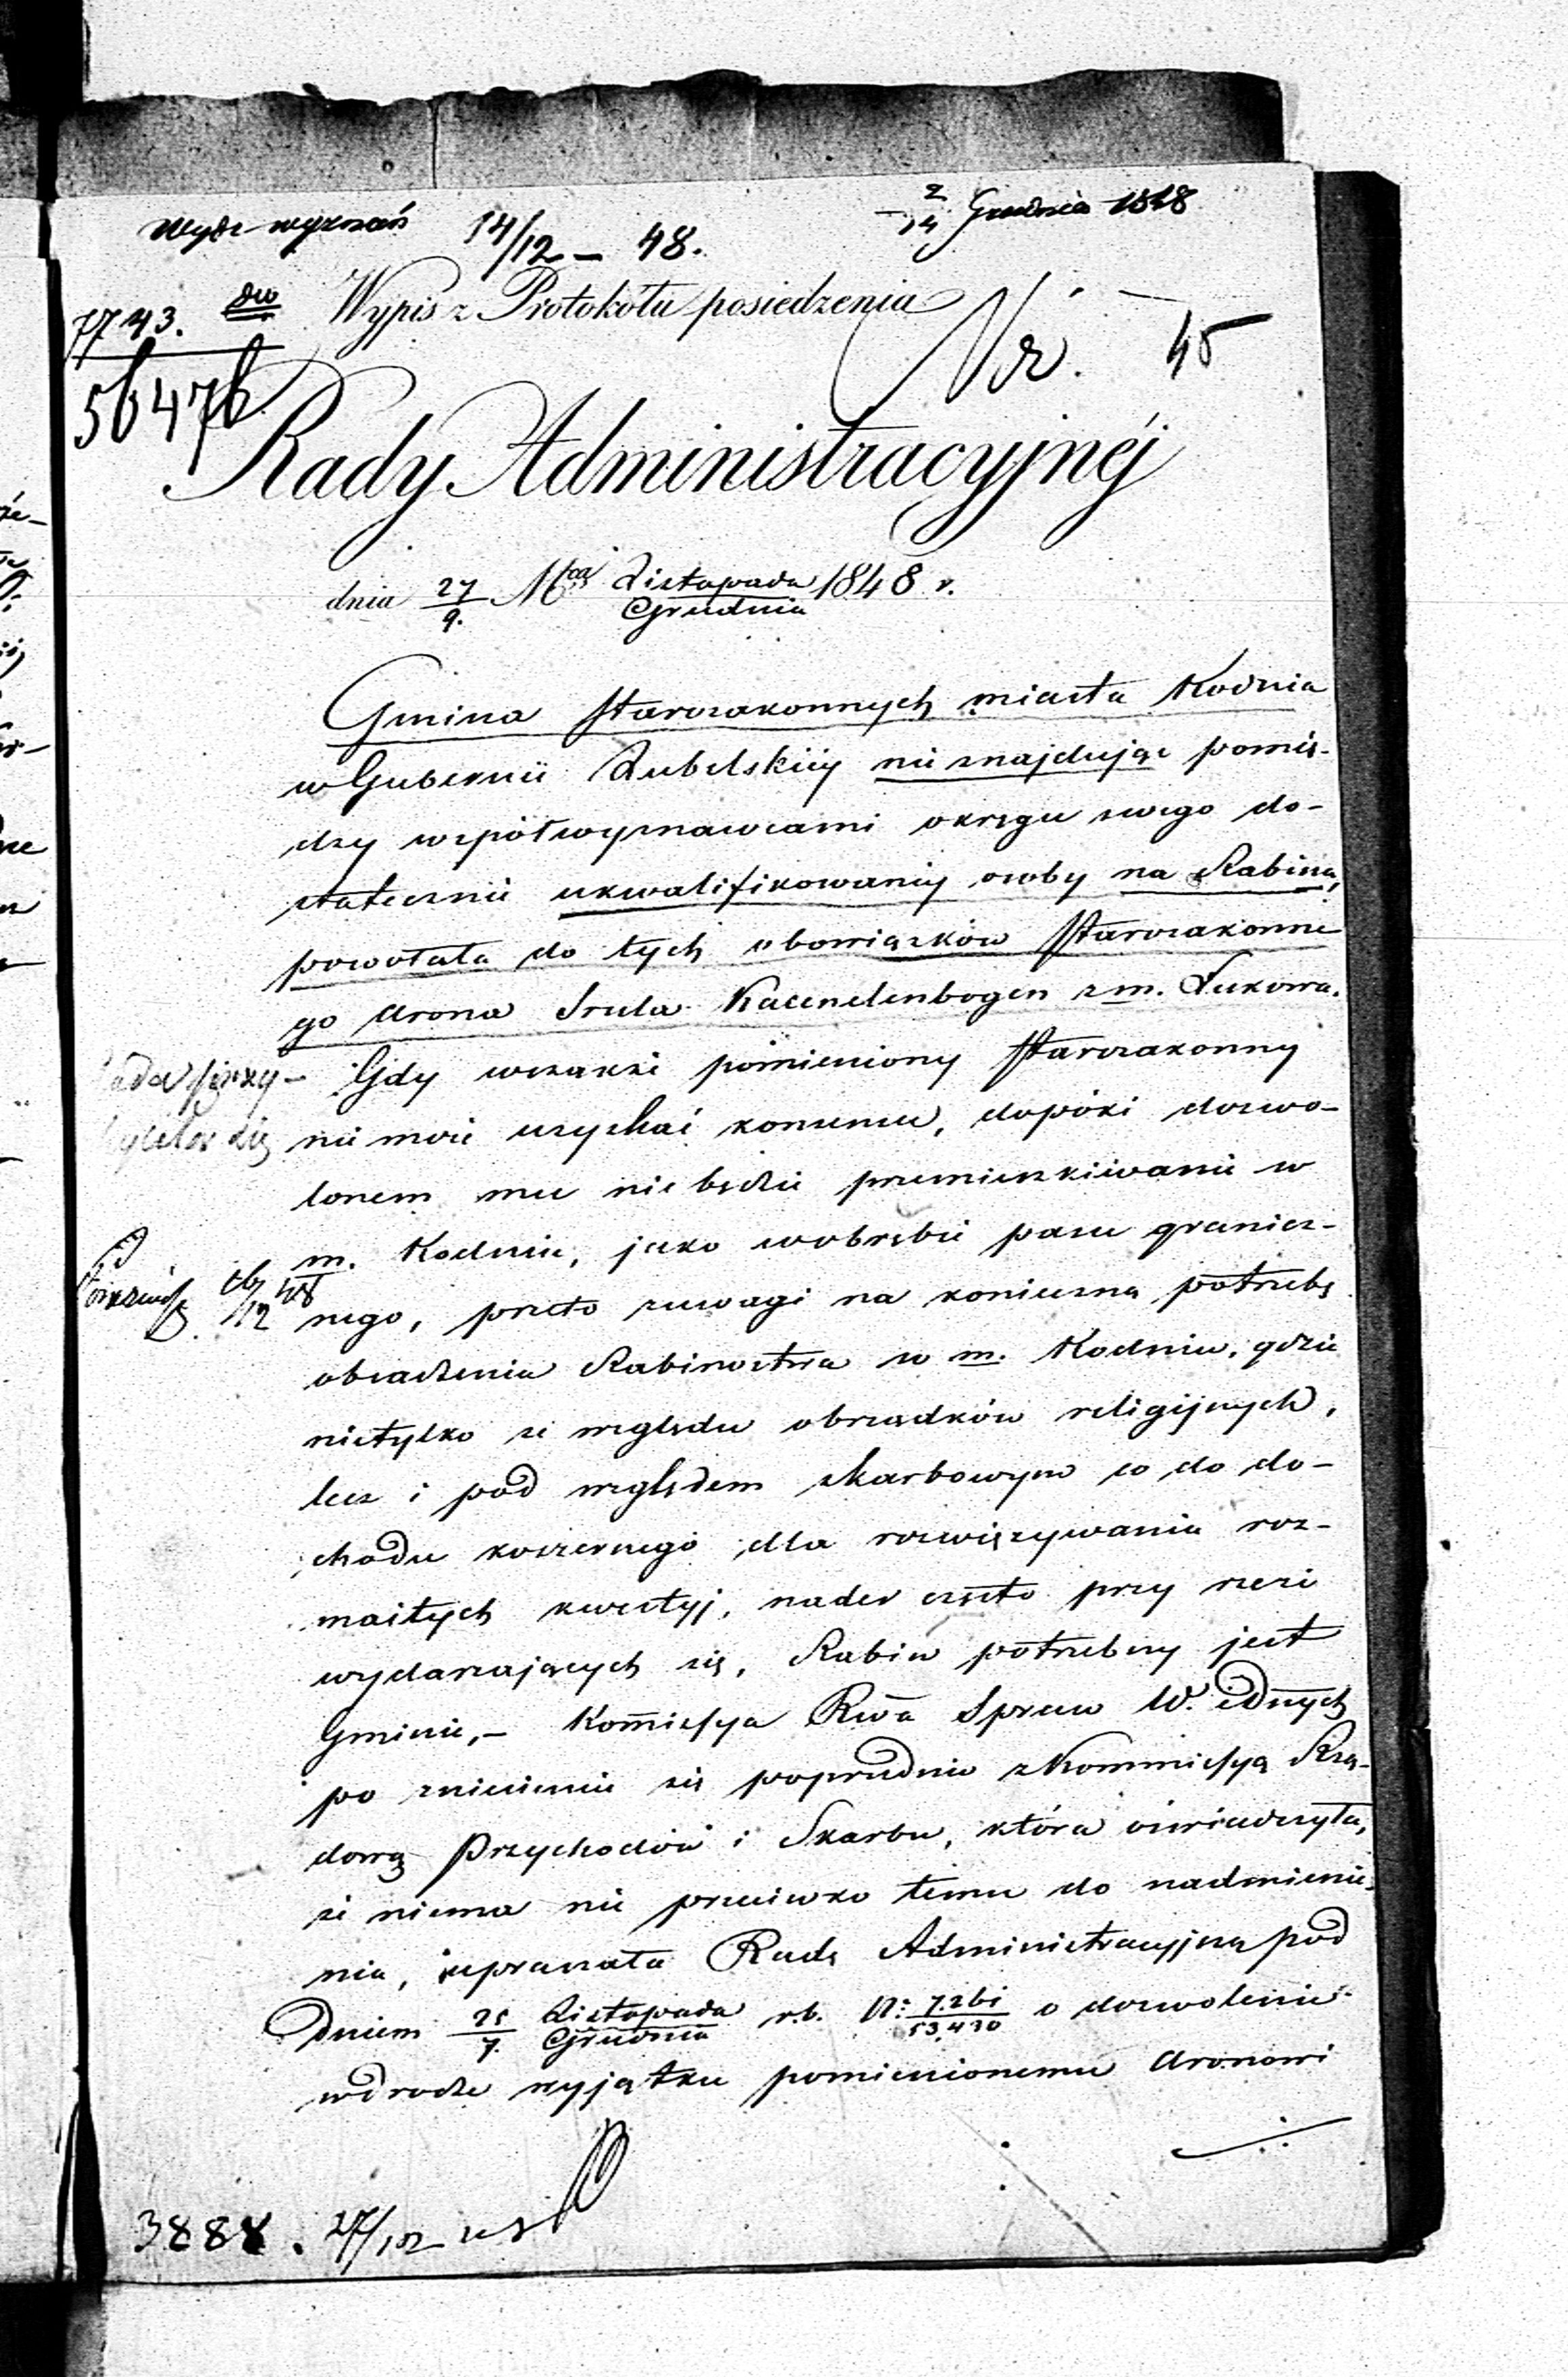 2/14 Grudnia 1848
Wydz. wyznań 14/12 – 48.
7743. Wypis z Protokółu posiedzenia Nr. 45
56476
Rady Administracyjnéj
dnia 27/9. Mca Listopada/Grudnia 1848 r.
Gmina starozakonnych miasta Kodnia
w Gubernii Lubelskiéj nie znajdując pomię-
dzy współwyznawcami okręgu swego do-
statecznie ukwalifikowanéj osoby na Rabina,
powołała do tych obowiązków starozakonne
go Arona Srula Kacenelenbogen z m. Łukowa.
Gdy wszakże pomieniony starozakonny
nie może uzyskać konsensu, dopóki dozwo-
lonem mu nie będzie przemieszkiwanie w
m. Kodniu, jako w obrębie pasu granicz-
nego, przeto z uwagi na konieczną potrzebę
obsadzenia Rabinostwa w m. Kodniu, gdzie
nietylko ze względu obrządków religijnych,
lecz i pod względem skarbowym co do do-
chodu koszernego dla rozwiązywania roz-
maitych kwestyj, nader często przy rzezi
wydarzających się, Rabin potrzebny jest
Gminie, – Kommissya Rwa Spraw W. i Dnych
po zniesieniu się poprzednio z Kommissyą Rzą-
dową Przychodów i Skarbu, która oświadczyła,
że niema nic przeciwko temu do nadmienie-
nia, upraszała Radę Administracyjną pod
Dniem 25/7. Listopada/Grudnia r.b. N: 7.261/53,430 o dozwolenie
w drodze wyjątku pomienionemu Aronowi
3888. 27/12